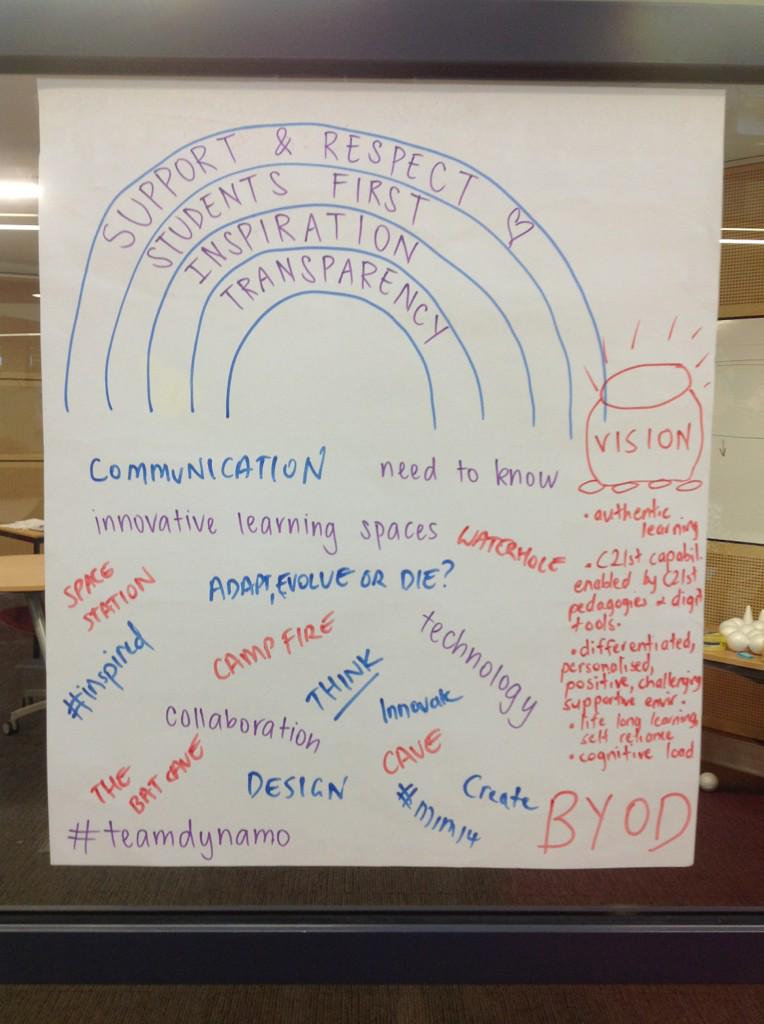 SUPPORT & RESPECT ♡
STUDENTS FIRST
INSPIRATION
TRANSPARENCY
VISION
COMMUNICATION
need to know
innovative learning spaces
WATERHOLE
SPACE
STATION
ADAPT, EVOLVE OR DIE?
#inspired
CAMP FIRE
THINK
technology
Innovate
collaboration
CAVE
THE
BAT CAVE
DESIGN
Create
#mim14
#teamdynamo
• authentic
learning
• C21st capabil.
enabled by C21st
pedagogies & digit
tools.
• differentiated,
personalised,
positive, challenging
supportive envir.
• life long learning,
self reliance
• cognitive load
BYOD